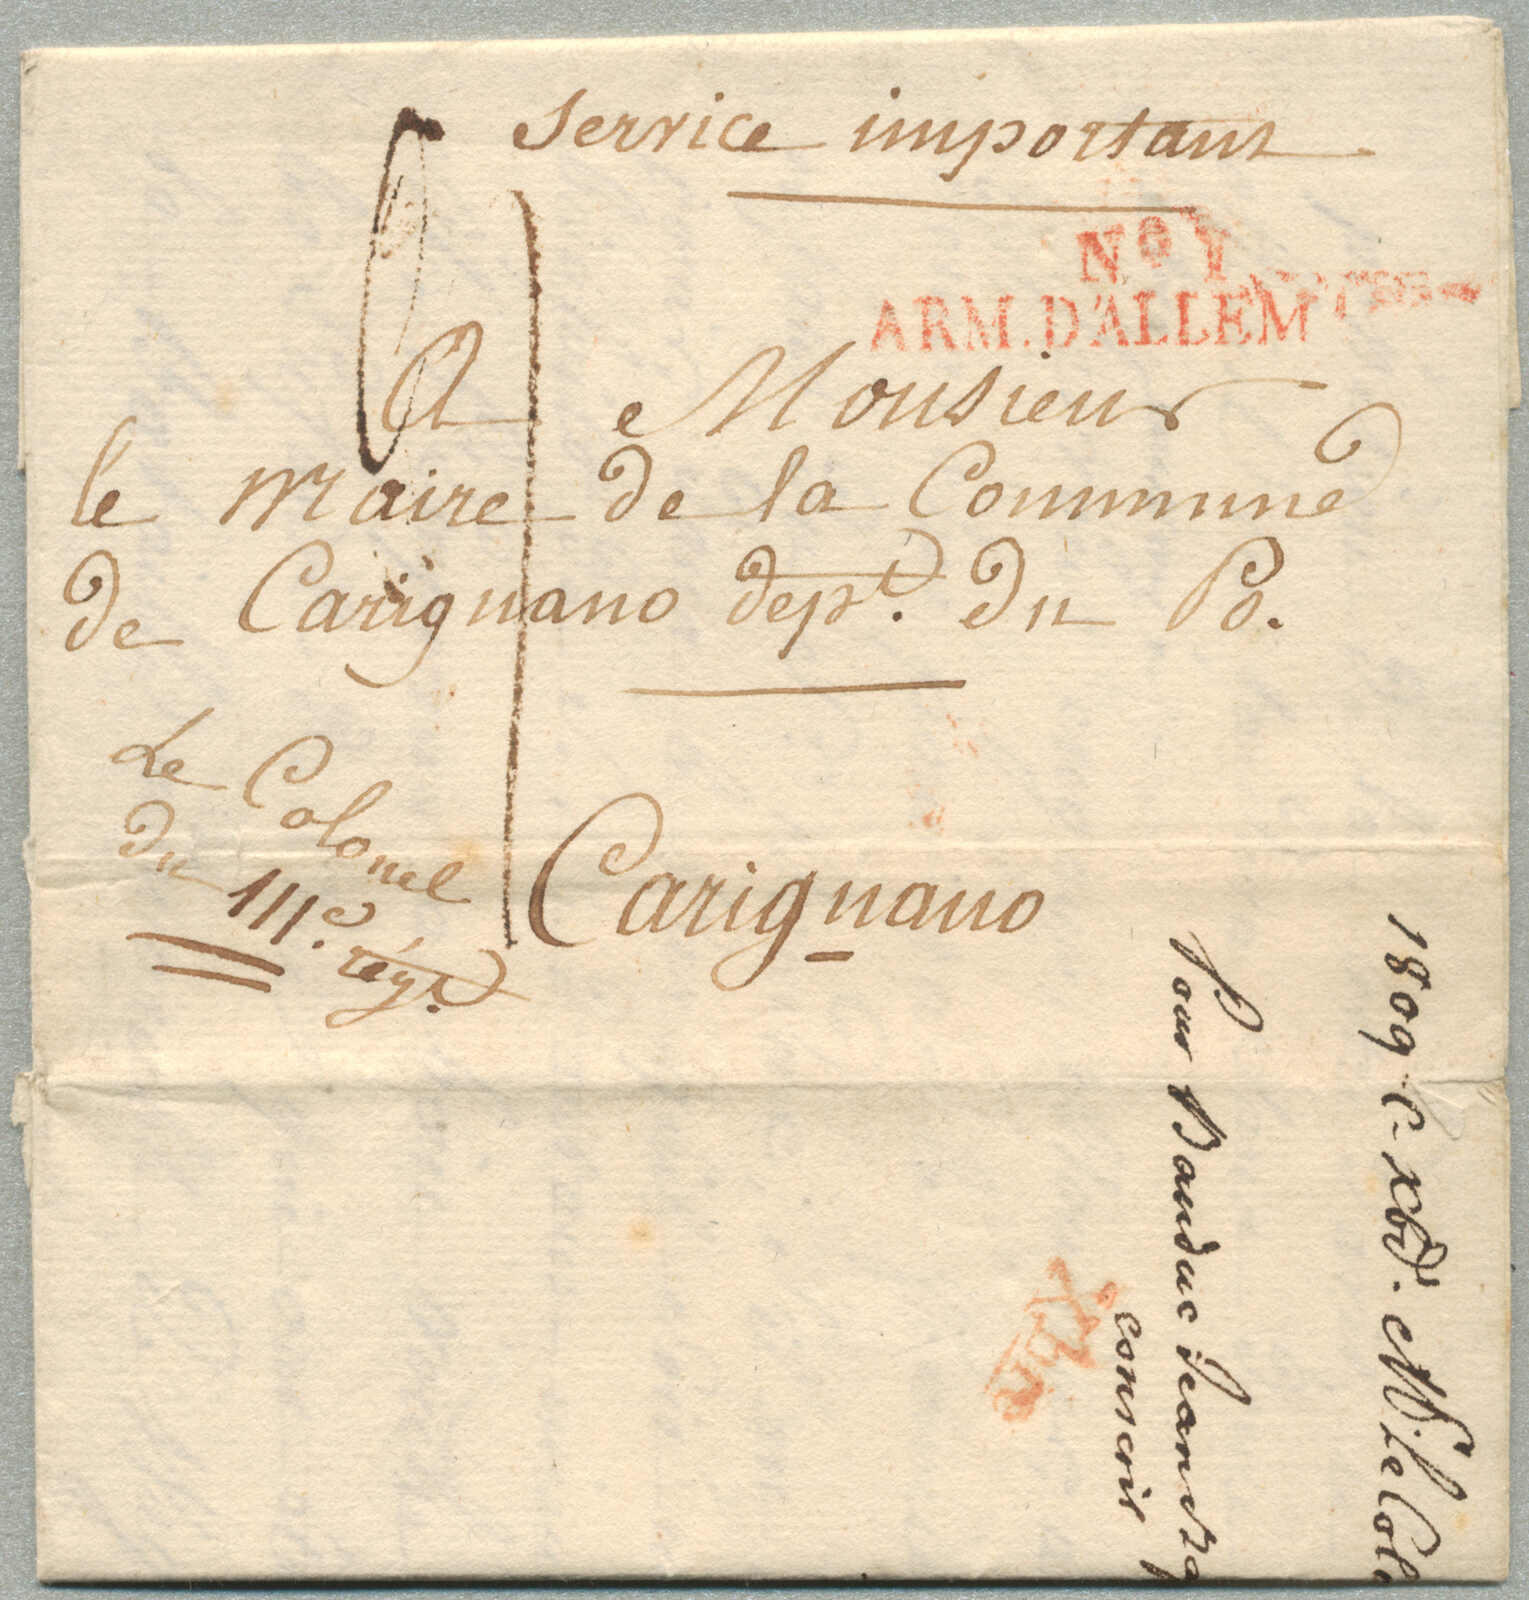 Service important
No 1
ARM. D'ALLEM
A Monsieur
le Maire de la Commune
de Carignano dept. du Po.
Le Colonel
du 111e. régt.
Carignano
1809 6 xbr. Mr. le Col
Pour Banduc Jean
conscrit